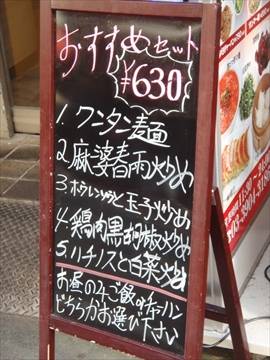 おすすめセット
¥630
1. ワンタン麺
2. 麻婆春雨炒め
3. ホウレンソウと玉子炒め
4. 鶏肉黒胡椒炒め
5. ハチノスと白菜炒め
お昼の
ご飯orチャーハン
どちらかお選び下さい